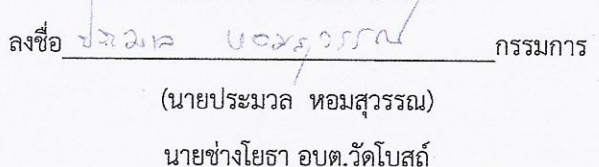 ลงชื่อ ประมวล หอมสุวรรณ กรรมการ
(นายประมวล หอมสุวรรณ)
นายช่างโยธา อบต.วัดโบสถ์